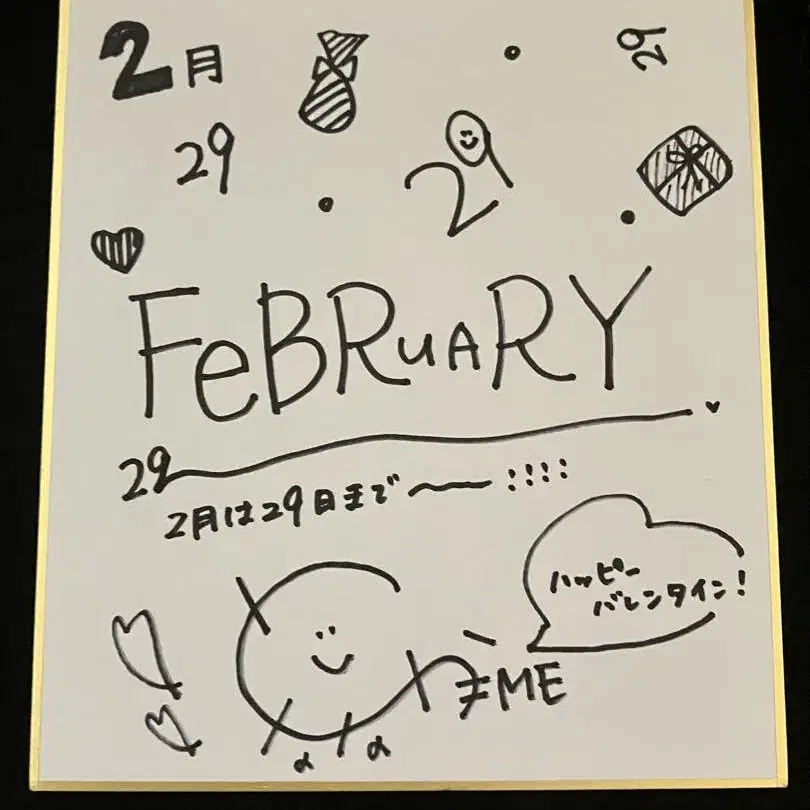 2月
29
29
29
FeBRuARY
29
2月は29日まで〜::::
ハッピー
バレンタイン!
≠ME